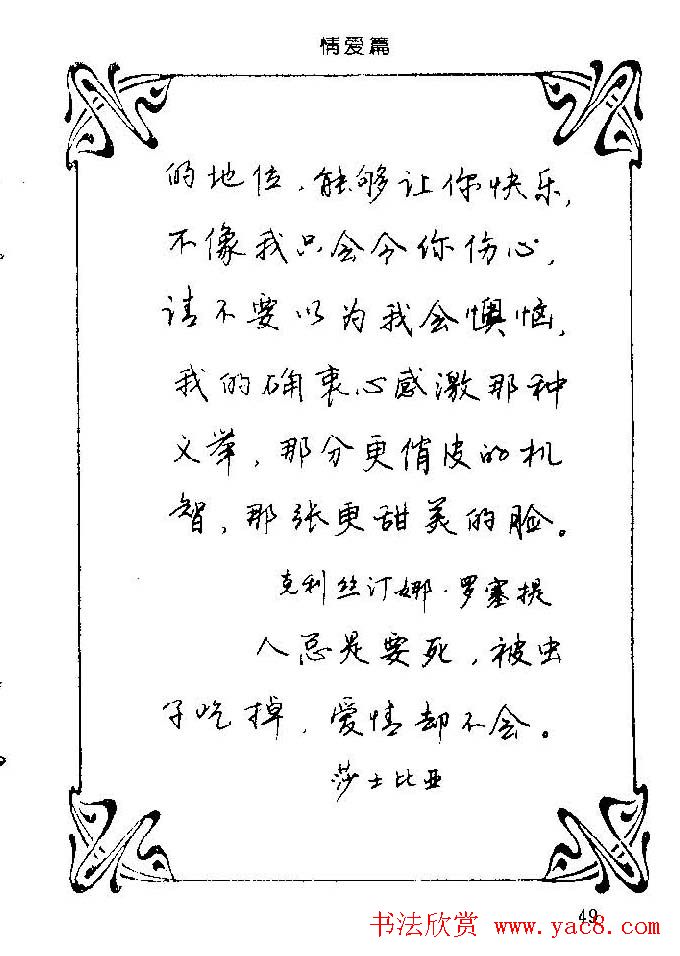 情爱篇
的地位，能够让你快乐，
不像我只会令你伤心，
请不要以为我会懊恼，
我的确衷心感激那种
义举，那分更俏皮的机
智，那张更甜美的脸。
克利丝汀娜·罗塞提
人总是要死，被虫
子吃掉，爱情却不会。
莎士比亚
49
书法欣赏 www.yac8.com